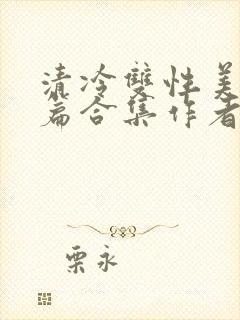 清冷雙性美
篇合集作者
栗永